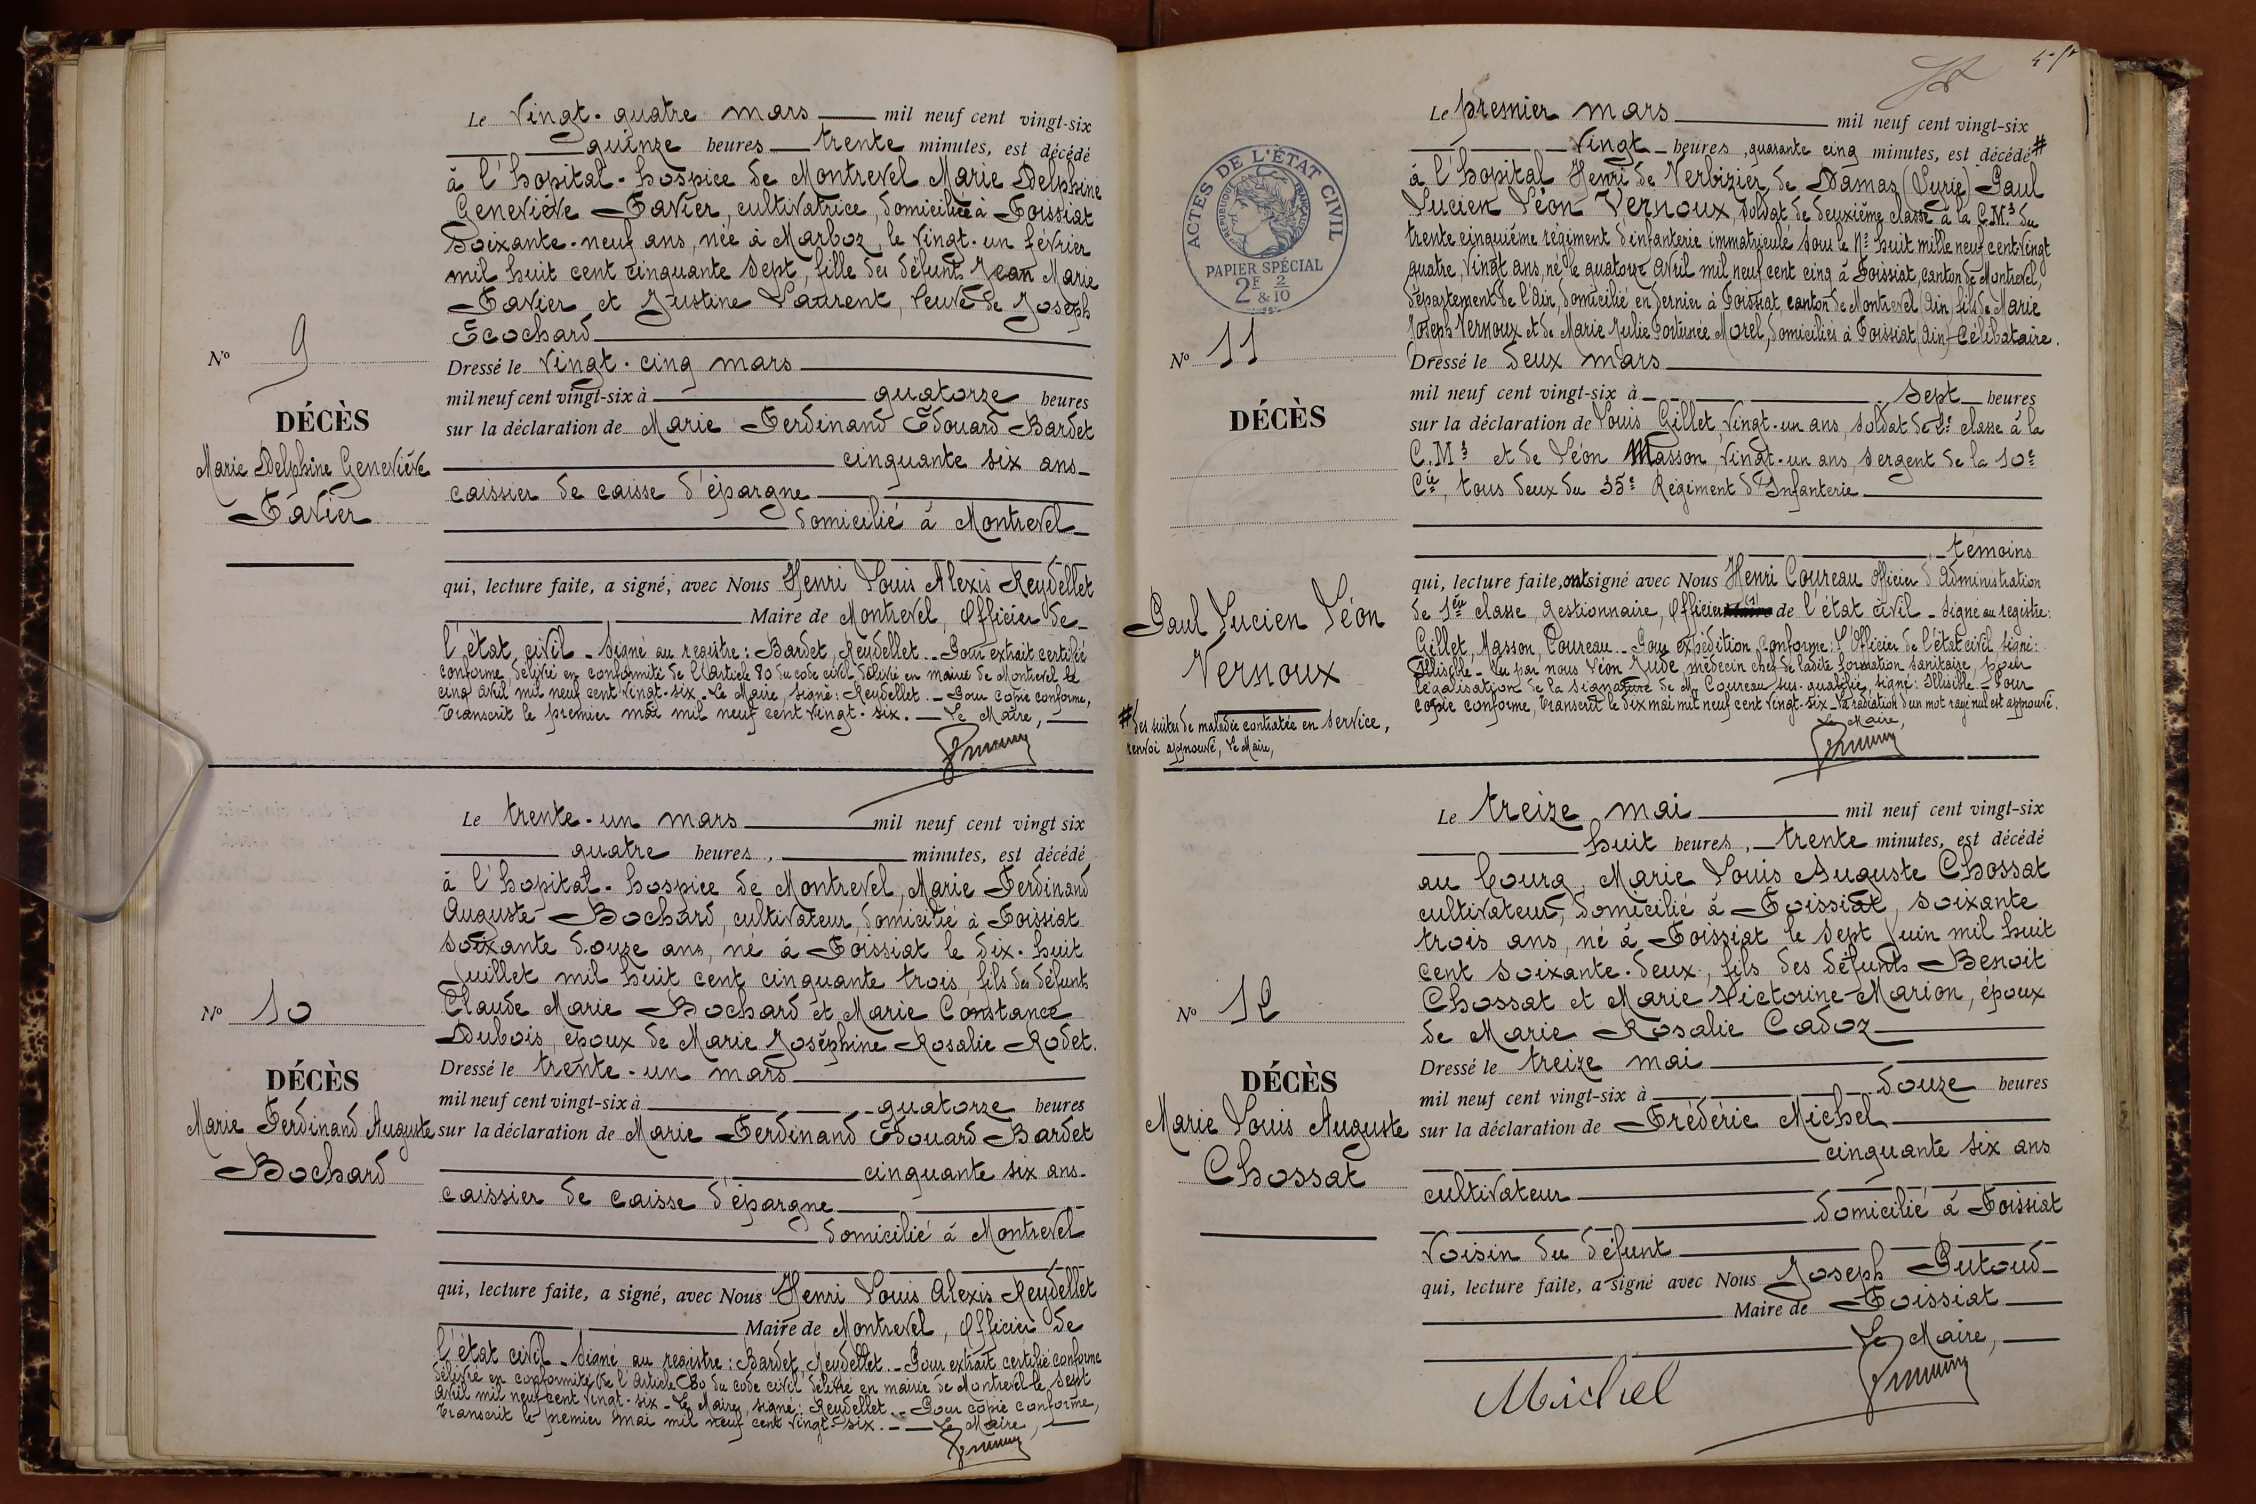 Le vingt-quatre mars mil neuf cent vingt-six
quinze heures trente minutes, est décédé
à l'hopital-hospice de Montrevel Marie Delphine
Geneviève Favier, cultivatrice, domiciliée à Foissiat
soixante-neuf ans, née à Marboz, le vingt-un février
mil huit cent cinquante sept, fille des défunts Jean Marie
Favier et Justine Laurent, veuve de Joseph
Ecochard
Nº 9
Dressé le vingt-cinq mars
mil neuf cent vingt-six à quatorze heures
DÉCÈS
sur la déclaration de Marie Ferdinand Edouard Bardet
Marie Delphine Geneviève
Favier
cinquante six ans
caissier de caisse d'épargne
domicilié à Montrevel
qui, lecture faite, a signé, avec Nous Henri Louis Alexis Reydellet
Maire de Montrevel, Officier de
l'état civil - Signé au registre : Bardet, Reydellet. - Pour extrait certifié
conforme délivré en conformité de l'Article 80 du code civil délivré en mairie de Montrevel le
cinq avril mil neuf cent vingt-six - Le Maire, signé : Reydellet. - Pour copie conforme,
Transcrit le premier mai mil neuf cent vingt-six. - Le Maire,
Le trente-un mars mil neuf cent vingt six
quatre heures, minutes, est décédé
à l'hopital-hospice de Montrevel, Marie Ferdinand
Auguste Bochard, cultivateur, domicilié à Foissiat
soixante douze ans, né à Foissiat le dix-huit
Juillet mil huit cent cinquante trois, fils des défunts
Claude Marie Bochard et Marie Constance
Dubois, époux de Marie Joséphine Rosalie Rodet.
Nº 10
Dressé le trente-un mars
mil neuf cent vingt-six à quatorze heures
DÉCÈS
Marie Ferdinand Auguste
Bochard
sur la déclaration de Marie Ferdinand Edouard Bardet
cinquante six ans
caissier de caisse d'épargne
domicilié à Montrevel
qui, lecture faite, a signé, avec Nous Henri Louis Alexis Reydellet
Maire de Montrevel, Officier de
l'état civil - Signé au registre : Bardet, Reydellet. - Pour extrait certifié conforme
délivré en conformité de l'Article 80 du code civil délivré en mairie de Montrevel le sept
avril mil neuf cent vingt-six - Le Maire, signé : Reydellet. - Pour copie conforme,
Transcrit le premier mai mil neuf cent vingt-six. - Le Maire,
Le premier mars mil neuf cent vingt-six
vingt heures, quarante cinq minutes, est décédé #
à l'hopital Henri de Verbizier de Damas (Syrie) Paul
Lucien Léon Vernoux, soldat de deuxième classe à la C.M.3 du
trente cinquième régiment d'infanterie immatriculé sous le Nº huit mille neuf cent vingt
quatre, vingt ans, né le quatorze avril mil neuf cent cinq à Foissiat, canton de Montrevel,
département de l'Ain, domicilié en dernier à Foissiat, canton de Montrevel (Ain) fils de Marie
Joseph Vernoux et de Marie Julie Fortunée Morel, domiciliés à Foissiat (Ain) - Célibataire.
ACTES DE L'ÉTAT CIVIL
RÉPUBLIQUE FRANÇAISE
PAPIER SPÉCIAL
2F & 2/10
Nº 11
Dressé le deux mars
mil neuf cent vingt-six à sept heures
DÉCÈS
sur la déclaration de Louis Gillet, vingt-un ans, soldat de 2e classe à la
C.M.3 et de Léon Masson, vingt-un ans, sergent de la 10e
Cie, tous deux du 35e Régiment d'Infanterie
témoins
qui, lecture faite, ont signé avec Nous Henri Coureau Officier d'Administration
de 1ère classe, Gestionnaire, Officier de l'état civil - Signé au registre :
Gillet, Masson, Coureau - Pour expédition conforme : L'Officier de l'état civil signé :
Illisible - Vu par nous Léon Jude, médecin chef de ladite formation sanitaire, pour
légalisation de la signature de M. Coureau sus-qualifié, signé : Illisible - Pour
copie conforme, Transcrit le dix mai mil neuf cent vingt-six - La radiation d'un mot rayé nul est approuvé.
Le Maire,
Paul Lucien Léon
Vernoux
# des suites de maladie contractée en service,
renvoi approuvé, Le Maire,
Le treize mai mil neuf cent vingt-six
huit heures, trente minutes, est décédé
au bourg, Marie Louis Auguste Chossat
cultivateur, domicilié à Foissiat, soixante
trois ans, né à Foissiat le sept Juin mil huit
cent soixante-deux, fils des défunts Benoit
Chossat et Marie Victorine Marion, époux
de Marie Rosalie Cadoz
Nº 12
Dressé le treize mai
mil neuf cent vingt-six à douze heures
DÉCÈS
Marie Louis Auguste
Chossat
sur la déclaration de Frédéric Michel
cinquante six ans
cultivateur
domicilié à Foissiat
voisin du défunt
qui, lecture faite, a signé avec Nous Joseph Putoud
Maire de Foissiat
Le Maire,
Michel